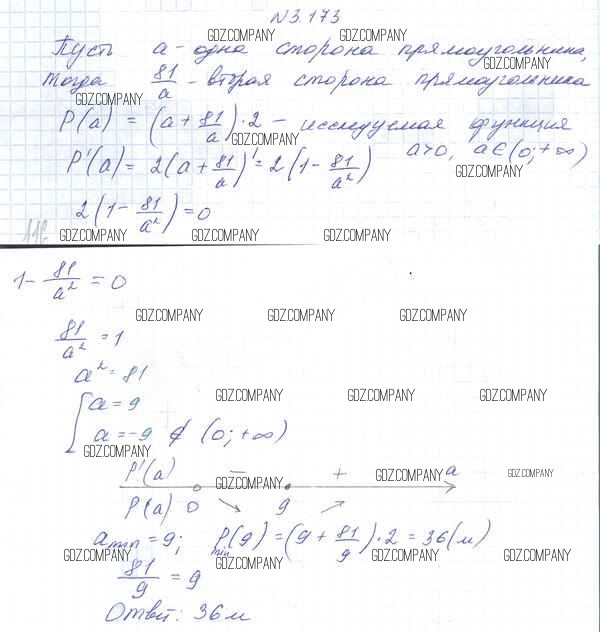 N3.173
GDZ.COMPANY GDZ.COMPANY
Пусть a - одна сторона прямоугольника,
GDZ.COMPANY
тогда 81/a - вторая сторона прямоугольника
GDZ.COMPANY
P(a) = (a + 81/a) · 2 - исследуемая функция
GDZ.COMPANY
a>0, a∈(0;+∞)
P'(a) = 2(a + 81/a)' = 2(1 - 81/a²)
GDZ.COMPANY
2(1 - 81/a²) = 0
GDZ.COMPANY GDZ.COMPANY GDZ.COMPANY
1 - 81/a² = 0
GDZ.COMPANY GDZ.COMPANY GDZ.COMPANY
81/a² = 1
a² = 81
GDZ.COMPANY GDZ.COMPANY GDZ.COMPANY
[a = 9
a = -9 ∉ (0;+∞)
GDZ.COMPANY
P'(a) - + a
GDZ.COMPANY GDZ.COMPANY GDZ.COMPANY
P(a) 0 ↘ 9 ↗
a min = 9; P min (9) = (9 + 81/9) · 2 = 36(м)
GDZ.COMPANY GDZ.COMPANY GDZ.COMPANY GDZ.COMPANY
81/9 = 9
Ответ: 36м